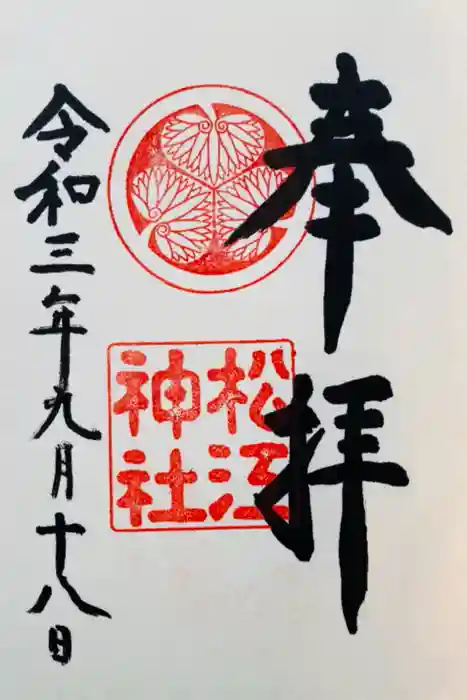 奉拝
松江
神社
令和三年九月十八日